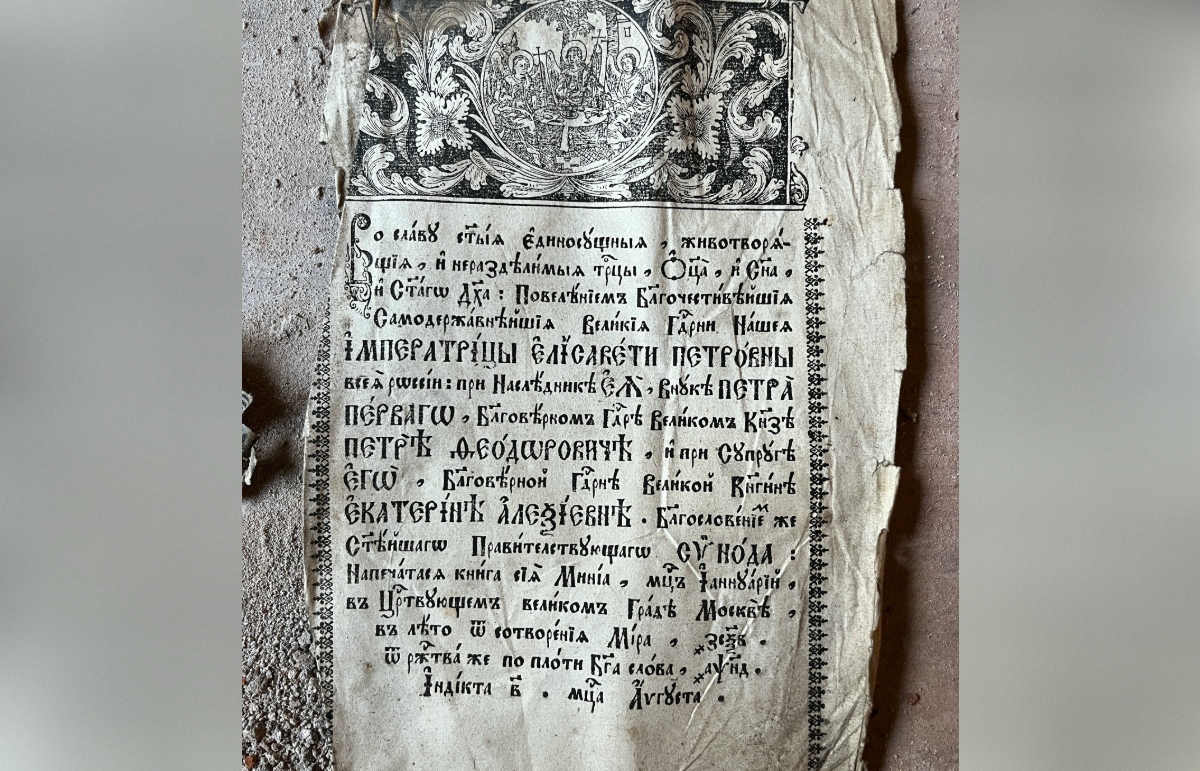 Во сла́ву ст҃ы́ѧ є҆диносу́щныѧ , животворѧ́-
щїѧ , и҆ нераздѣли́мыѧ трⷪ҇цы , Ѻ҆ц҃а̀ , и҆ Сн҃а ,
и҆ Ст҃а́гѡ Дх҃а : Повелѣ́нїемъ Бл҃гочести́вѣйшїѧ
Самодержа́внѣйшїѧ Вели́кїѧ Гдⷭ҇рни На́шеѧ
І҆МПЕРАТРІ́ЦЫ Є҆ЛІСАВЕ́ТИ ПЕТРО́ВНЫ
всеѧ̀ рѡссі́и : при Наслѣ́дникѣ Є҆Ѧ̀ , Внꙋ́кѣ ПЕТРА̀
ПЕ́РВАГѠ , Бл҃говѣ́рномъ Гдⷭ҇рѣ Вели́комъ Кн҃зѣ
ПЕТРѢ̀ Ѳ҆ЕО́ДѠРОВИЧѢ , и҆ при Сꙋпрꙋ́гѣ
Є҆ГѠ̀ , Бл҃говѣ́рной Гдⷭ҇рнѣ Вели́кой Кн҃ги́нѣ
Є҆КАТЕРІ́НѢ А҆ЛЕѮІ́ЕВНѢ . Бл҃гослове́нїемъ же
Ст҃ѣ́йшагѡ Прави́тельствꙋющагѡ СѴНО́ДА :
Напеча́тасѧ кни́га сїѧ̀ Мині́а , мцⷭ҇ъ І҆аннꙋа́рїй ,
въ Црⷭ҇твꙋющемъ вели́комъ Гра́дѣ Москвѣ̀ ,
въ лѣ́то ѿ сотворе́нїѧ Мі́ра , ҂зсѯв .
ѿ рж҇тва́ же по пло́ти Бг҃а сло́ва , ҂аѱнд .
І҆ндікта в҃ . мцⷭ҇а А҆́vгꙋста .